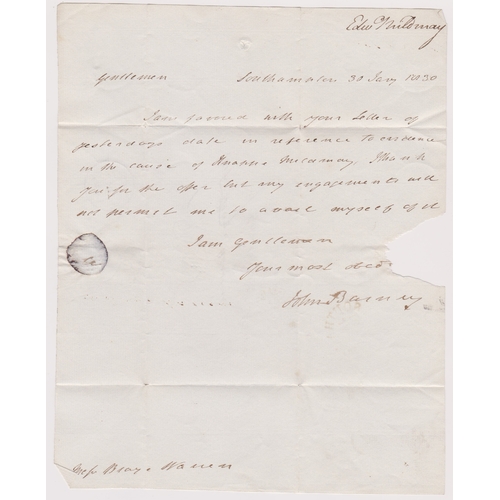 Gentlemen Southampton 30 Jany 1830
I am favored with your Letter of
yesterdays date in reference to evidence
in the cause of Mildmay I thank
you for the offer but my engagements will
not permit me to avail myself of it
I am Gentlemen
Your most obedt
John Barney
Messrs Warren